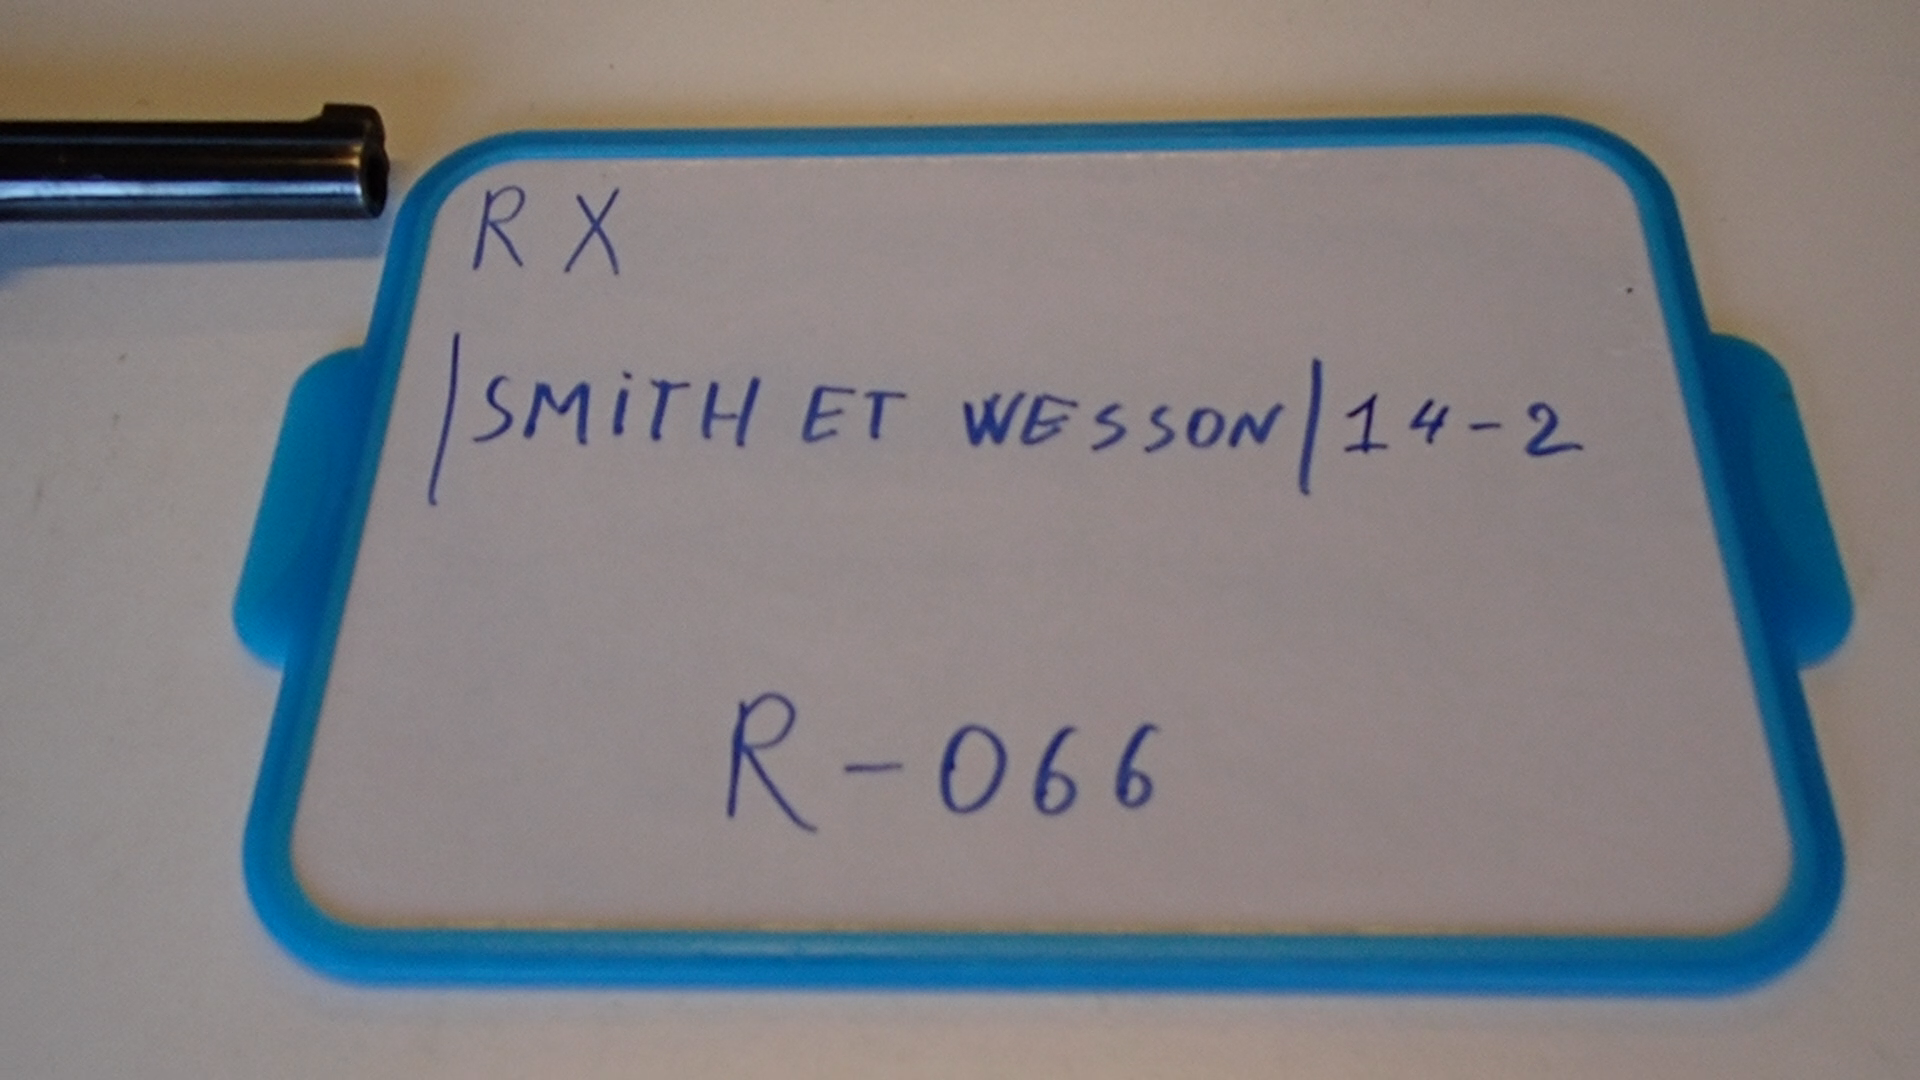 R X
/SMiTH ET WESSON/14-2
R-066